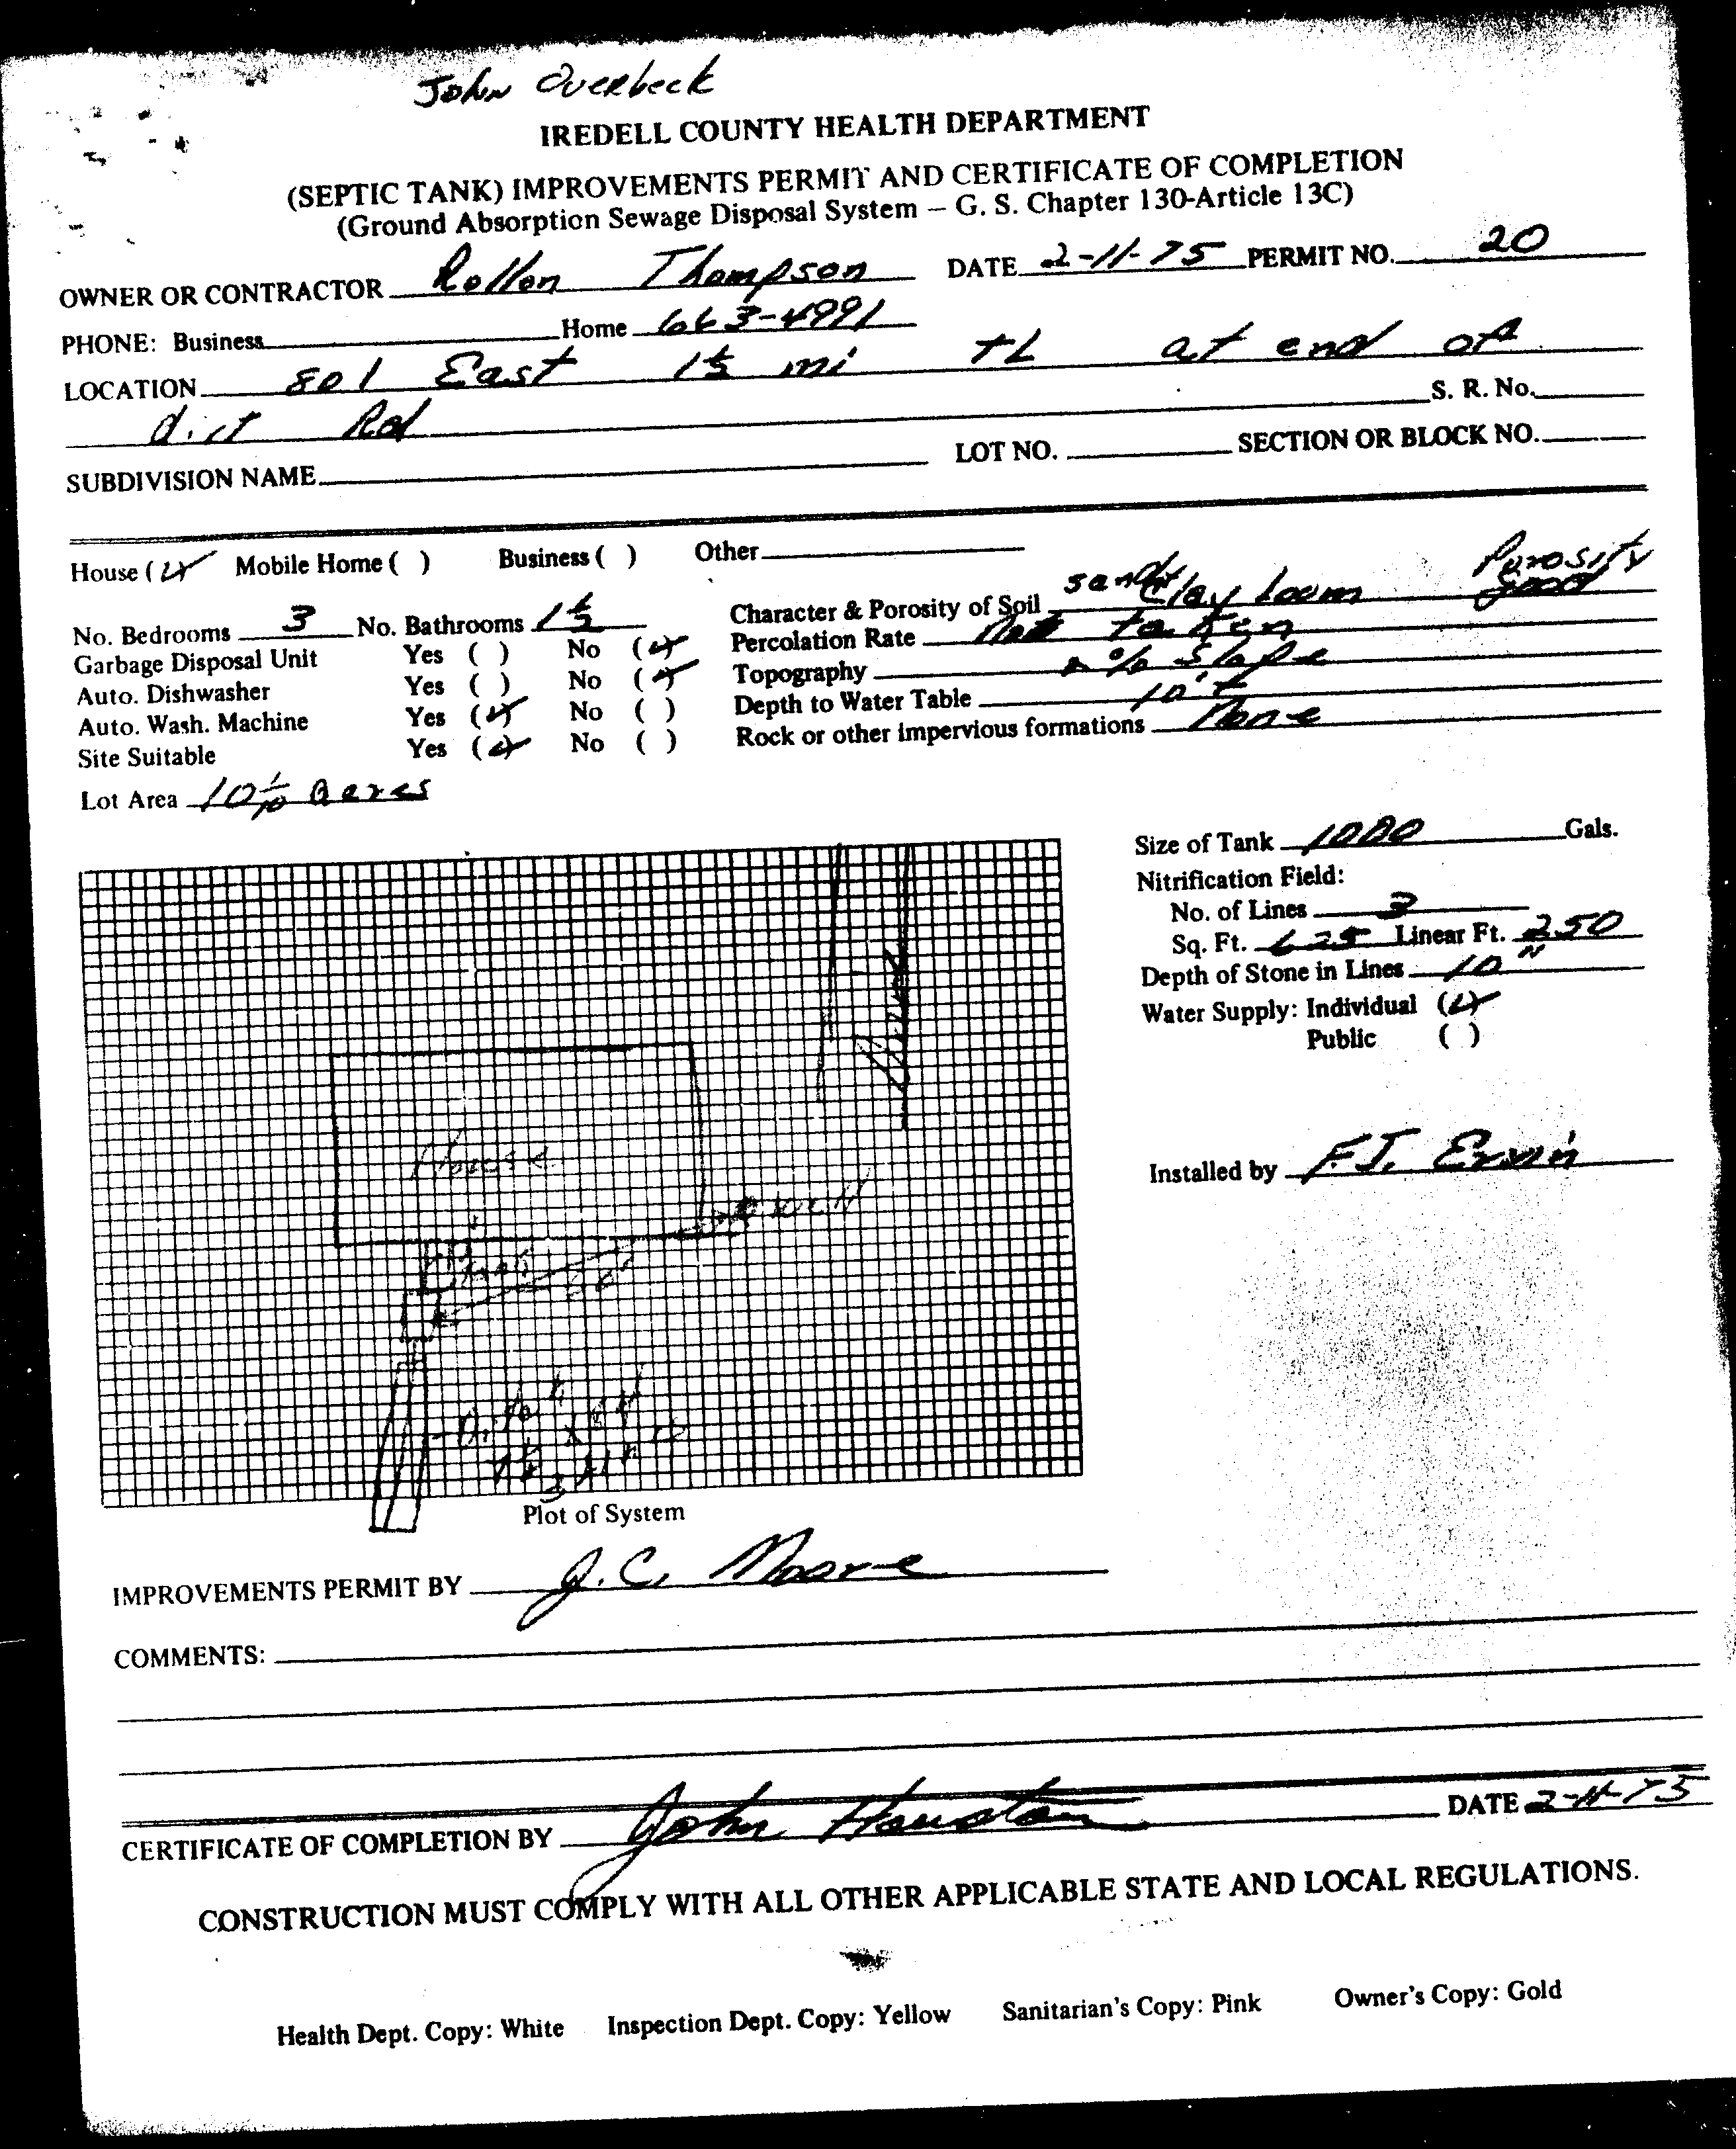 John Overbeck
IREDELL COUNTY HEALTH DEPARTMENT
(SEPTIC TANK) IMPROVEMENTS PERMIT AND CERTIFICATE OF COMPLETION
(Ground Absorption Sewage Disposal System – G. S. Chapter 130-Article 13C)
OWNER OR CONTRACTOR Rollen Thompson DATE 2-11-75 PERMIT NO. 20
PHONE: Business Home 663-4991
LOCATION 801 East 1½ mi TL at end of
dirt Rd S. R. No.
SUBDIVISION NAME LOT NO. SECTION OR BLOCK NO.
House (✓) Mobile Home ( ) Business ( ) Other
No. Bedrooms 3 No. Bathrooms 1½ Character & Porosity of Soil sandy Clay Loam Porosity good
Garbage Disposal Unit Yes ( ) No (✓) Percolation Rate Not taken
Auto. Dishwasher Yes ( ) No (✓) Topography % Slope
Auto. Wash. Machine Yes (✓) No ( ) Depth to Water Table 10'+
Site Suitable Yes (✓) No ( ) Rock or other impervious formations None
Lot Area 10 1/10 Acres
Size of Tank 1000 Gals.
Nitrification Field:
No. of Lines 3
Sq. Ft. 625 Linear Ft. 250
Depth of Stone in Lines 10"
Water Supply: Individual (✓)
Public ( )
House
Installed by F.J. Ervin
Tank
3 Lines
Plot of System
IMPROVEMENTS PERMIT BY J.C. Moore
COMMENTS:
CERTIFICATE OF COMPLETION BY John Houston DATE 2-11-75
CONSTRUCTION MUST COMPLY WITH ALL OTHER APPLICABLE STATE AND LOCAL REGULATIONS.
Health Dept. Copy: White Inspection Dept. Copy: Yellow Sanitarian's Copy: Pink Owner's Copy: Gold